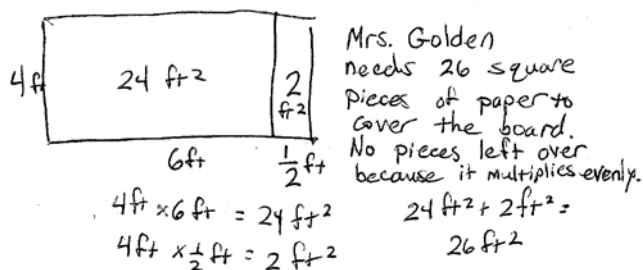 4ft
24 ft2
2
ft2
6ft
1/2 ft
Mrs. Golden
needs 26 square
pieces of paper to
cover the board.
No pieces left over
because it multiplies evenly.
4ft × 6ft = 24 ft²
4ft × 1/2 ft = 2 ft²
24 ft² + 2 ft² =
26 ft²